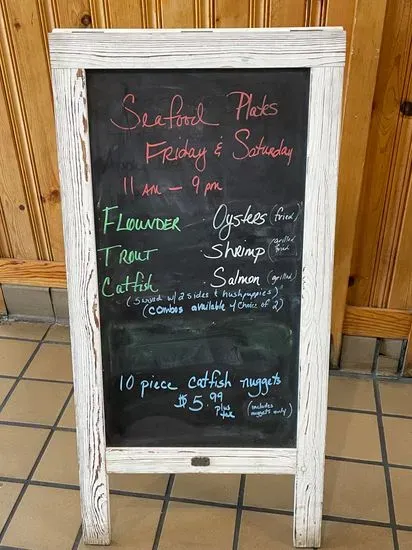 Seafood Plates
Friday & Saturday
11 am — 9 pm
Flounder Oysters (fried)
Trout Shrimp (grilled fried)
Catfish Salmon (grilled)
(Served w/ 2 sides & hushpuppies)
(combos available 4 choice of 2)
10 piece catfish nuggets
$5.99 plus tax (includes nuggets only)